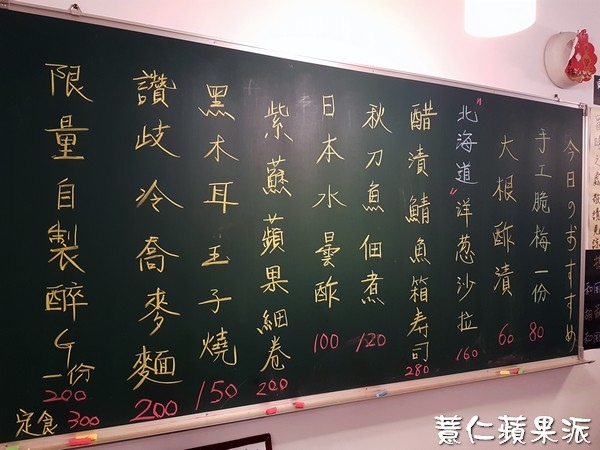 今日のおすすめ
手工脆梅一份 80
大根酢漬 60
"北海道"洋葱沙拉 160
醋漬鯖魚箱寿司 280
秋刀魚佃煮 120
日本水曇酢 100
紫蘇蘋果細卷 200
黑木耳玉子燒 150
讚歧冷喬麥麵 200
限量自製醉G一份 200
定食 300
薏仁蘋果派